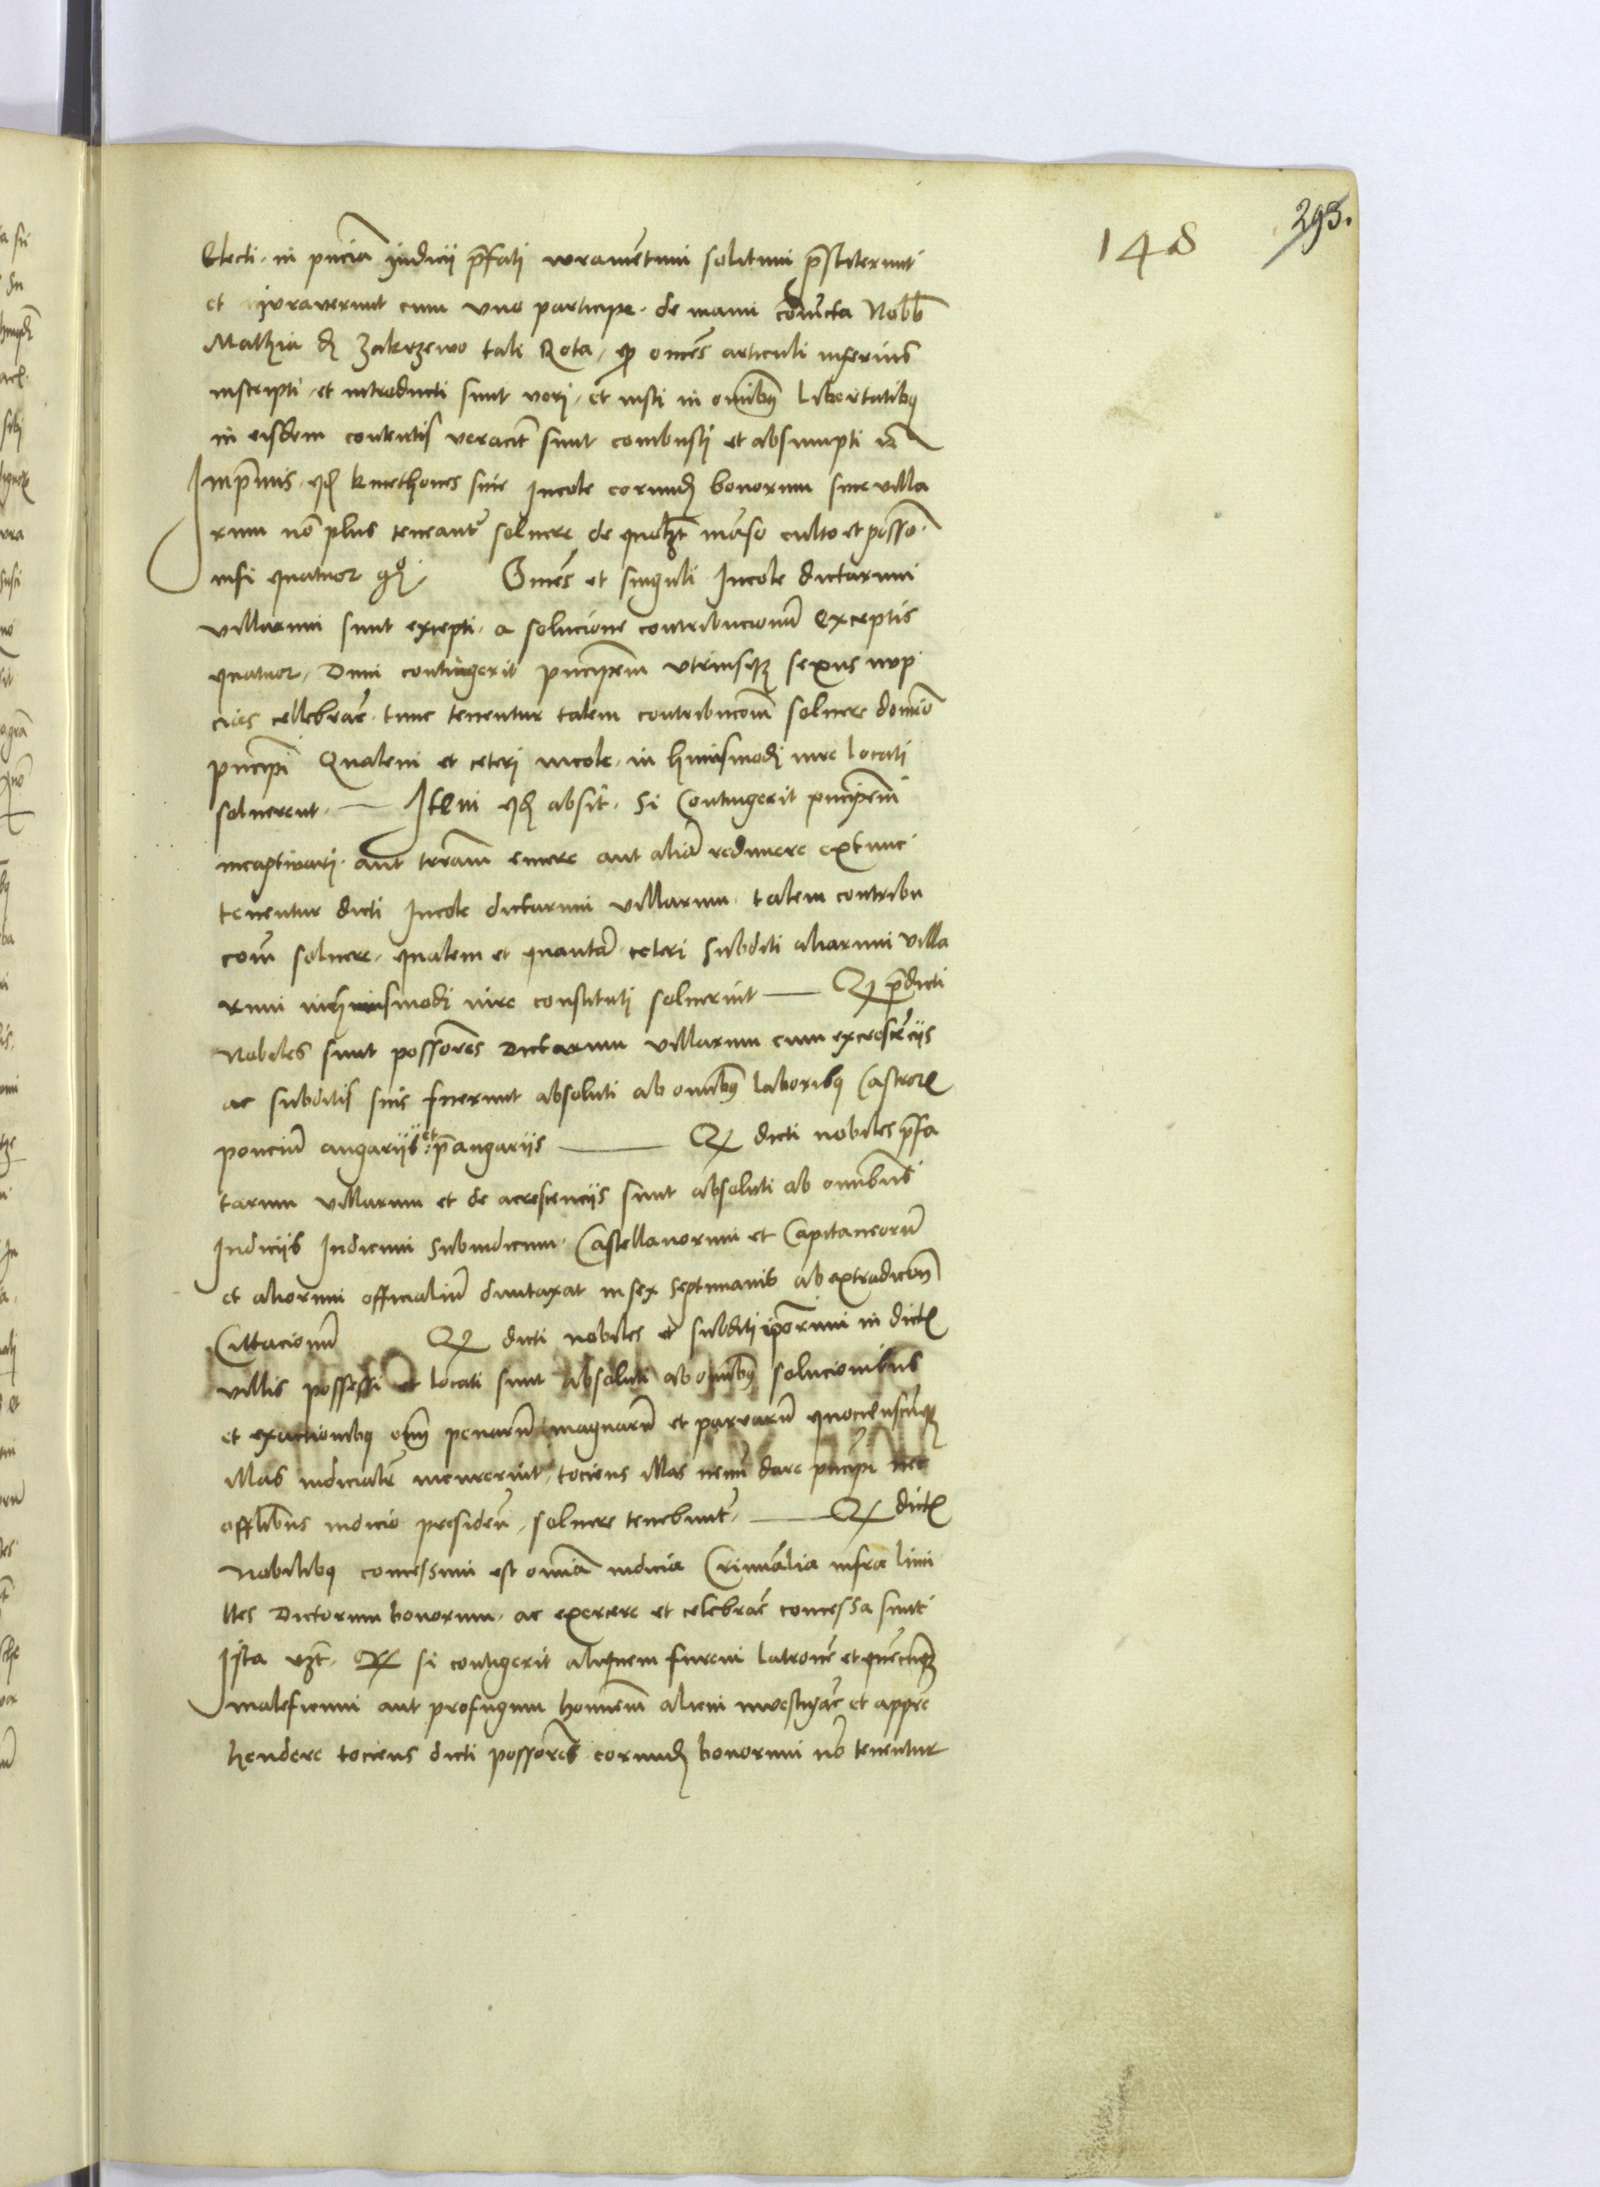 148
293.
Electi in pn̄cia Judicii p̄fati iuramētum solitum p̄stiterunt
et iuraverunt cum uno participe de manu cōiuncta Nobb
Mathia de Zakrzewo tali Rota, q omēs articuli inferius
inscripti et introducti sunt veri et iusti in omībus libertatibus
in eisdem contentis veracit sunt combusti et absumpti
Inp̄mis qd kmethones sive Incole eorund bonorum sive villa
rum nō plus teneant solvere de quolzt māso culto et posso
nisi quatuor gß Omēs et singuli Incole dictarum
villarum sunt excepti a solucione contribucionū Exceptis
quatuor, Dum contingerit pncipem utriusq sexus nup
cias cellebrare tunc tenentur talem contribucōem solvere domīo
pncipi Qualem et ceteri incole in huiusmodi iure locati
solverent Item qd absit Si Contingerit pncipem
incaptivari aut trram emere aut aliā redimere extunc
tenentur dicti Incole dictarum villarum talem contribu
cōem solvere qualem et quantā ceteri Subditi aliarum villa
rum inhuiusmodi iure constituti solverint Q p̄dicti
Nobiles sunt possores Dictarum villarum cum excrescēciis
ac subditis suis fuerunt absoluti ab omibus laboribus Castror
ponciū angariis et p̄angariis Q dicti nobiles p̄fa
tarum villarum et de acrescenciis sunt absoluti ab omnibus
Judiciis Judicum Subiudicum Castellanorum et Capitaneorū
et aliorum officialiū duntaxat in sex septimanis ab extradicōn
Cittacionū Q dicti nobiles et subditi ipōrum in dictis
villis possessi et locati sunt absoluti ab omībus solucionibus
et exactionibus om penarū magnarū et parvarū quociēscunq
illas iudicialit incurrerint tociens illas nemī dare pncipi nec
offlibus iudicio presiden solvere tenebunt Q dictis
Nobilibus concessum est omīa iudicia Criminalia infra limi
tes Dictorum bonorum ac exercere et celebrare concessa sunt
Ista vzt Q si contigerit aliquem furem latronē et quēcunq
maleficum aut profugum hominem alicui investigare et appre
hendere tociens dicti possores eorund bonorum nō tenentur